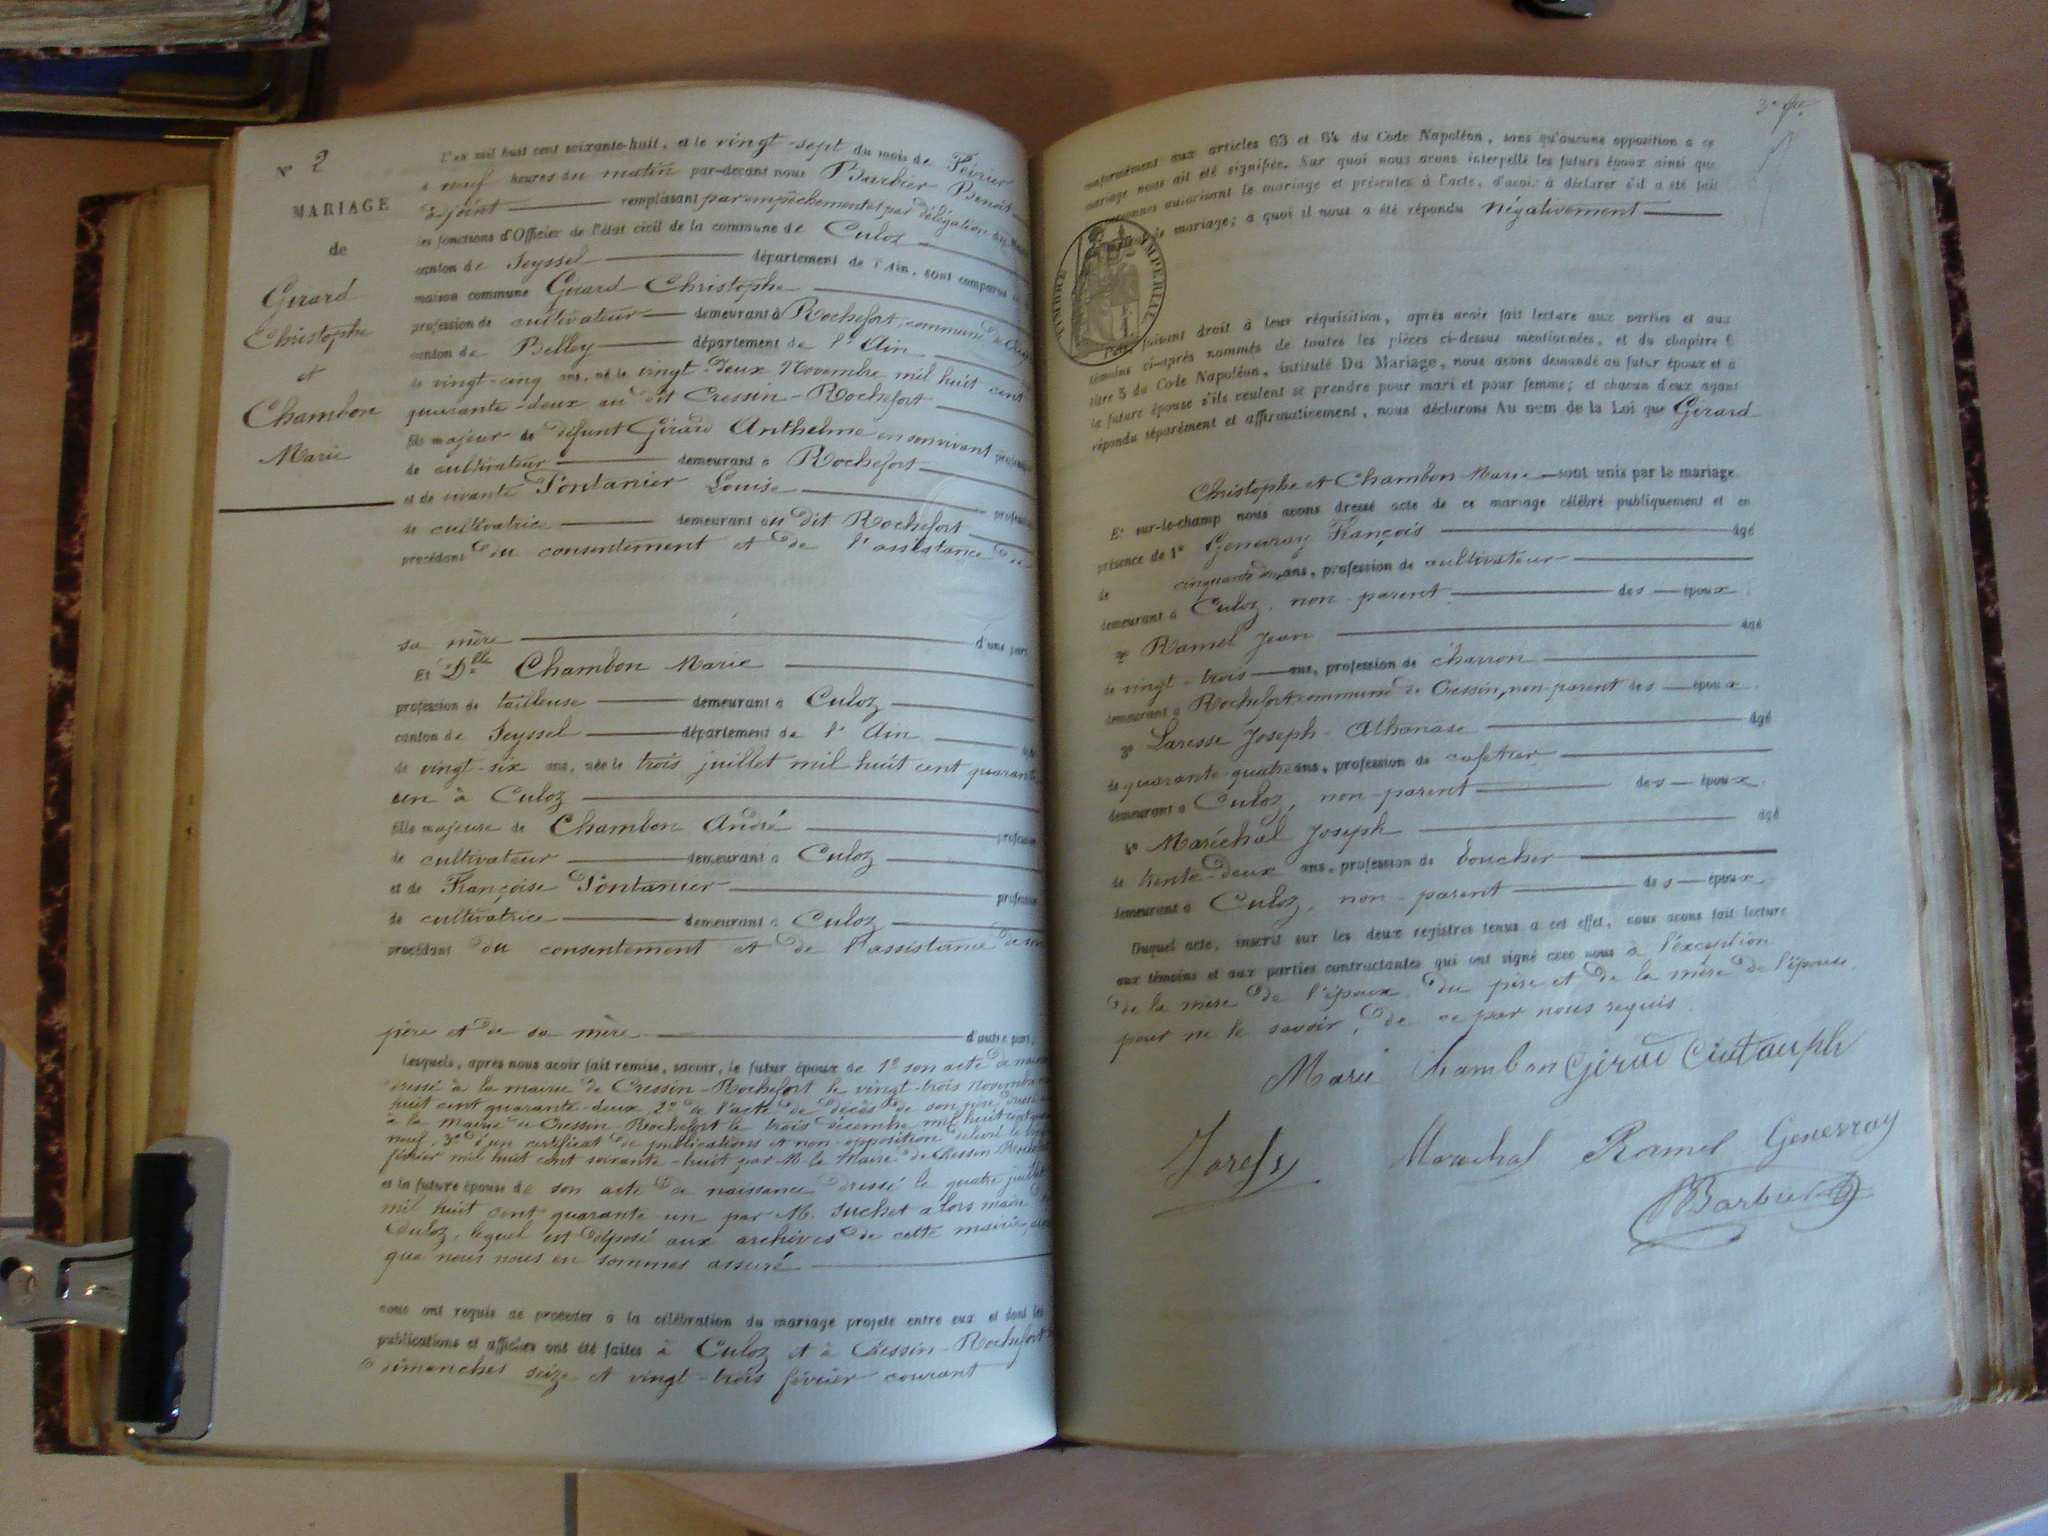 N° 2
MARIAGE
de
Girard
Christophe
et
Chambon
Marie
L'an mil huit cent soixante-huit, et le vingt-sept du mois de Février
à neuf heures du matin par-devant nous Barbier Benoit
adjoint remplissant par empêchement et par délégation du
les fonctions d'Officier de l'état civil de la commune de Culoz
canton de Seyssel département de l'Ain, sont comparus
maison commune Girard Christophe
profession de cultivateur demeurant à Rochefort, commune de
canton de Belley département de l'Ain
de vingt-cinq ans, né le vingt-deux Novembre mil huit cent
quarante-deux au dit Cressin-Rochefort
fils majeur de défunt Girard Anthelme en son vivant
de cultivateur demeurant à Rochefort
et de vivante Pontanier Louise profession
de cultivatrice demeurant au dit Rochefort
procédant du consentement et de l'assistance de
sa mère d'une part
Et Dlle Chambon Marie
profession de tailleuse demeurant à Culoz
canton de Seyssel département de l'Ain
de vingt-six ans, née le trois juillet mil huit cent quarante
un à Culoz
fille majeure de Chambon André profession
de cultivateur demeurant à Culoz
et de Françoise Pontanier profession
de cultivatrice demeurant à Culoz
procédant du consentement et de l'assistance de son
père et de sa mère d'autre part,
lesquels, après nous avoir fait remise, savoir, le futur époux de 1° son acte de
dressé à la mairie de Cressin-Rochefort le vingt-trois novembre
huit cent quarante-deux 2° de l'acte de décès de son père dressé
à la mairie de Cressin-Rochefort le trois décembre mil huit cent
neuf, 3° d'un certificat de publications et non-opposition délivré le
février mil huit cent soixante-huit par M. le Maire de Cressin-Rochefort
et la future épouse de son acte de naissance dressé le quatre juillet
mil huit cent quarante un par M. Suchet alors maire
Culoz, lequel est déposé aux archives de cette mairie,
que nous nous en sommes assuré
nous ont requis de procéder à la célébration du mariage projeté entre eux et dont les
publications et affiches ont été faites à Culoz et à Cressin-Rochefort
dimanches seize et vingt-trois février courant
conformément aux articles 63 et 64 du Code Napoléon, sans qu'aucune opposition à ce
mariage nous ait été signifiée. Sur quoi nous avons interpellé les futurs époux ainsi que
personnes autorisant le mariage et présentes à l'acte, d'avoir à déclarer s'il a été fait
de mariage; à quoi il nous a été répondu négativement
TIMBRE IMPERIAL
faisant droit à leur réquisition, après avoir fait lecture aux parties et aux
témoins ci-après nommés de toutes les pièces ci-dessus mentionnées, et du chapitre 6
titre 5 du Code Napoléon, intitulé Du Mariage, nous avons demandé au futur époux et à
la future épouse s'ils veulent se prendre pour mari et pour femme; et chacun d'eux ayant
répondu séparément et affirmativement, nous déclarons Au nom de la Loi que Girard
Christophe et Chambon Marie sont unis par le mariage
Et sur-le-champ nous avons dressé acte de ce mariage célébré publiquement et en
présence de 1° Genevray François âgé
de cinquante ans, profession de cultivateur
demeurant à Culoz, non-parent des époux.
2° Ramel Jean âgé
de vingt-trois ans, profession de charron
demeurant à Rochefort commune de Cressin, non-parent des époux.
3° Laresse Joseph-Athanase âgé
de quarante-quatre ans, profession de cafetier
demeurant à Culoz, non-parent des époux.
4° Maréchal Joseph âgé
de trente-deux ans, profession de boucher
demeurant à Culoz, non-parent des époux
Duquel acte, inscrit sur les deux registres tenus à cet effet, nous avons fait lecture
aux témoins et aux parties contractantes qui ont signé avec nous à l'exception
de la mère de l'époux, du père et de la mère de l'épouse
pour ne le savoir, de ce par nous requis.
Marie Chambon
Maréchal Ramel Genevray
Barbier